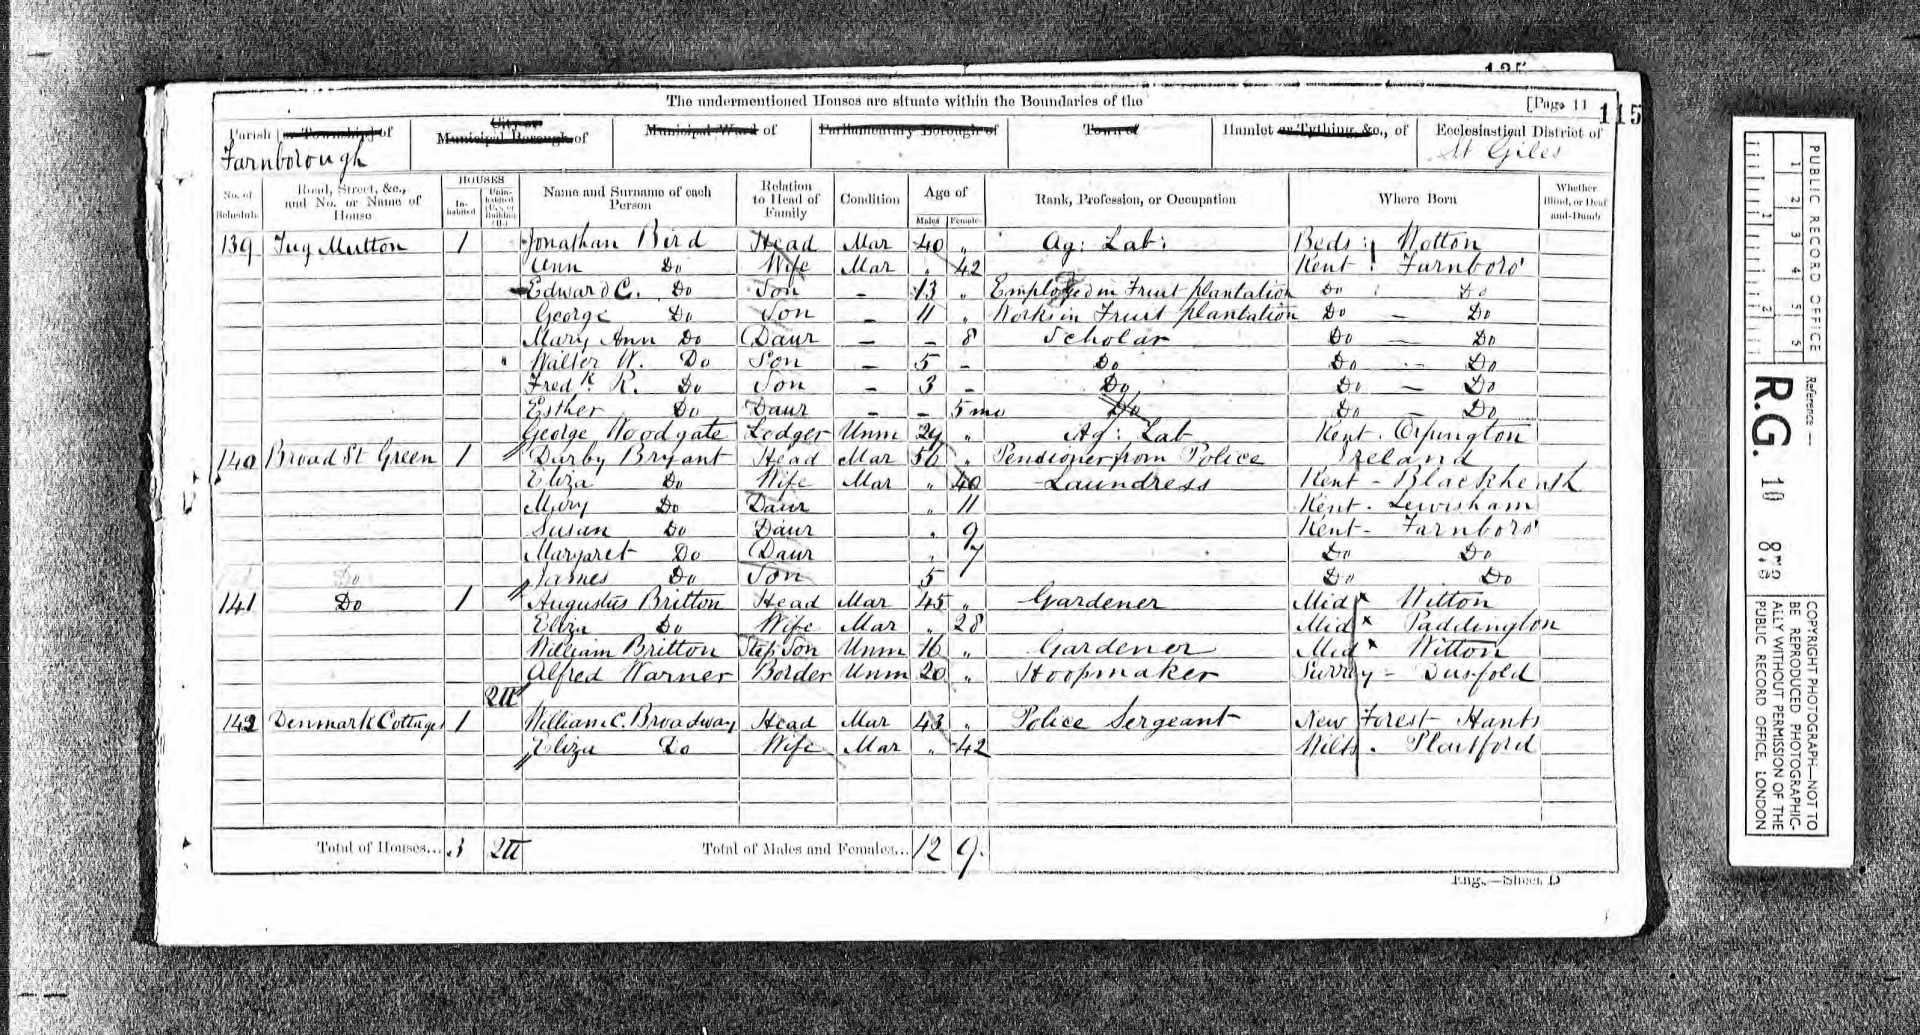 135
The undermentioned Houses are situate within the Boundaries of the
[Page 11
115
Parish or Township of
City or Municipal Borough of
Municipal Ward of
Parliamentary Borough of
Town of
Hamlet or Tything, &c., of
Ecclesiastical District of
Farnborough
St Giles
No. of Schedule
Road, Street, &c., and No. or Name of House
HOUSES
Inhabited
Uninhabited (U.), or Building (B.)
Name and Surname of each Person
Relation to Head of Family
Condition
Age of
Males
Females
Rank, Profession, or Occupation
Where Born
Whether Blind, or Deaf-and-Dumb
139 Tug Mutton 1 Jonathan Bird Head Mar 40 „ Ag: Lab: Beds: Wotton
Ann Do Wife Mar „ 42 Kent: Farnboro'
Edward C. Do Son – 13 „ Employed in Fruit plantation Do : Do
George Do Son – 11 „ Works in Fruit plantation Do – Do
Mary Ann Do Daur – – 8 Scholar Do – Do
Walter W. Do Son – 5 – Do Do – Do
Fredk R. Do Son – 3 – Do Do – Do
Esther Do Daur – – 5 mo Do Do – Do
George Woodgate Lodger Unm 29 „ Ag: Lab Kent. Orpington
140 Broad St Green 1 Darby Bryant Head Mar 50 „ Pensioner from Police Ireland
Eliza Do Wife Mar „ 40 Laundress Kent – Blackheath
Mary Do Daur „ 11 Kent. Lewisham
Susan Do Daur „ 9 Kent – Farnboro'
Margaret Do Daur „ 7 Do Do
Do James Do Son 5 Do Do
141 Do 1 Augustus Britton Head Mar 45 „ Gardener Mid x Witton
Eliza Do Wife Mar „ 28 Mid x Paddington
William Britton Step Son Unm 16 „ Gardener Mid x Witton
Alfred Warner Border Unm 20 „ Hoopmaker Surrey – Dunsfold
2U
142 Denmark Cottages 1 William C. Broadway Head Mar 43 „ Police Sergeant New Forest – Hants
Eliza Do Wife Mar „ 42 Wilts. Plaitford
Total of Houses... 3 2U Total of Males and Females... 12 9.
Eng.—Sheet D
PUBLIC RECORD OFFICE
1 2 3 4 5 5
1 2
Reference :—
R.G. 10 873
COPYRIGHT PHOTOGRAPH—NOT TO
BE REPRODUCED PHOTOGRAPHIC-
ALLY WITHOUT PERMISSION OF THE
PUBLIC RECORD OFFICE, LONDON